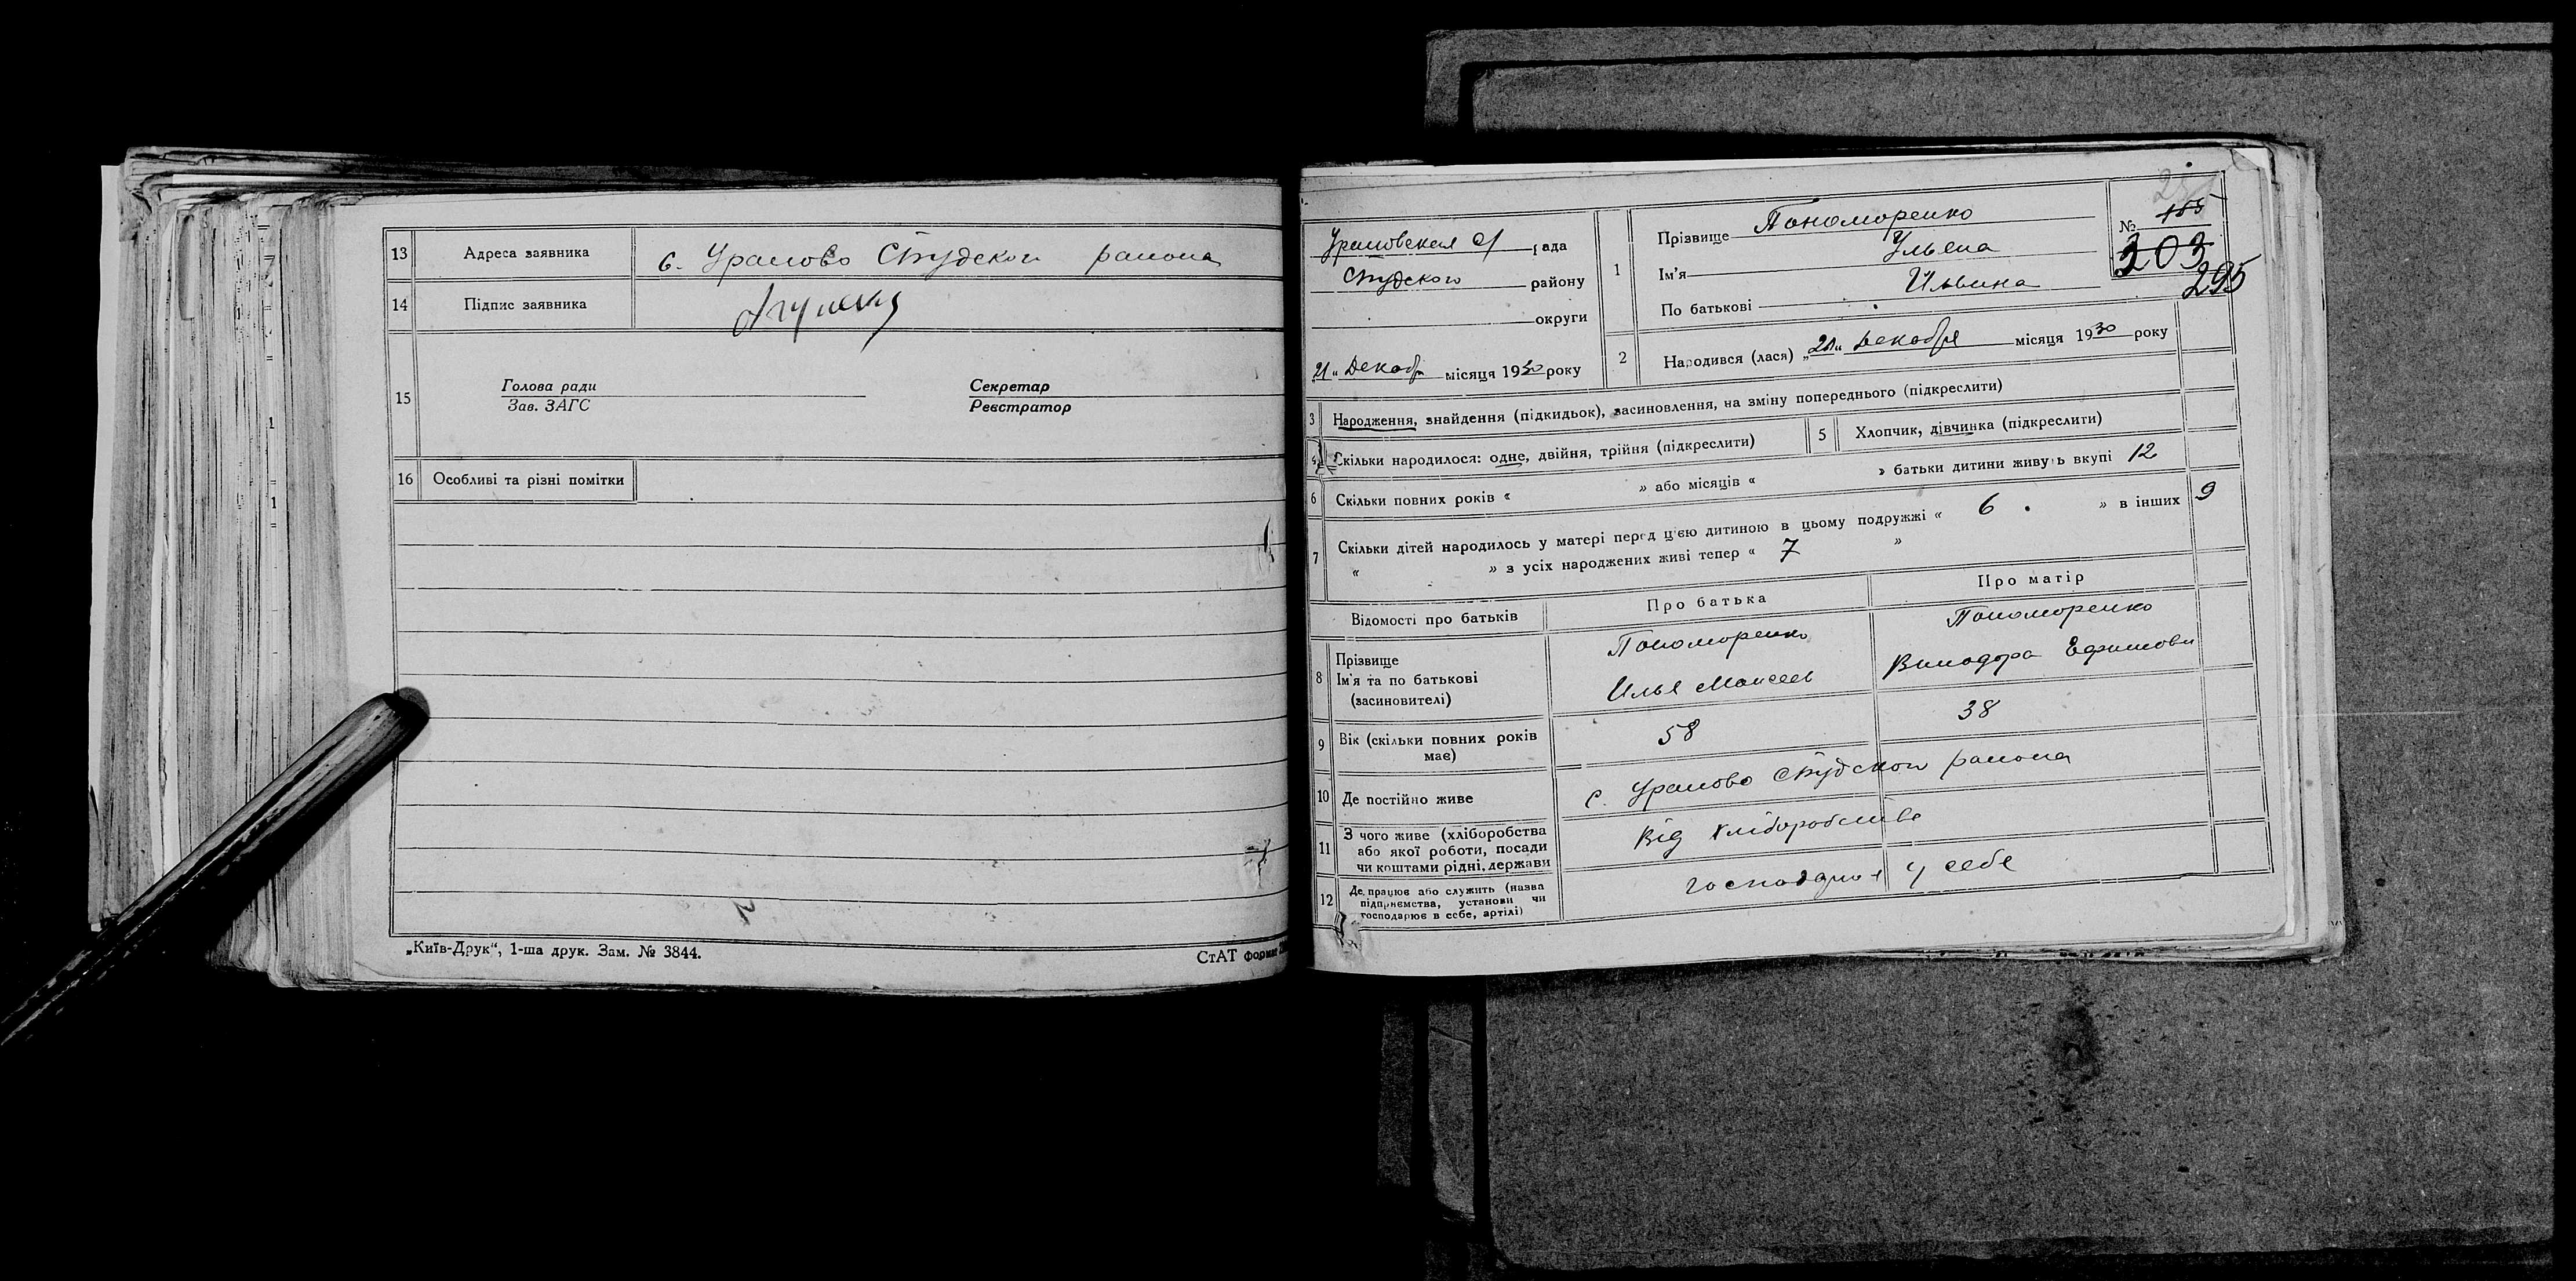 13 Адреса заявника с. Урамово Студского района
14 Підпис заявника
15 Голова ради
Зав. ЗАГС
Секретар
Реєстратор
16 Особливі та різні помітки
„Київ-Друк“, 1-ша друк. Зам. № 3844.
СтАТ формат
Урамовская с/ рада
Студского району
округи
„21“ Декабр місяця 1930 року
1 Прізвище Пономоренко
Ім'я Ульяна
По батькові Ильвина
№ 105
303
295
2 Народився (лася) „21“ Декабря місяця 1930 року
3 Народження, знайдення (підкидьок), засиновлення, на зміну попереднього (підкреслити)
4 Скільки народилося: одне, двійня, трійня (підкреслити)
5 Хлопчик, дівчинка (підкреслити)
6 Скільки повних років « » або місяців « » батьки дитини живуть вкупі 12
7 Скільки дітей народилось у матері перед цією дитиною в цьому подружжі « 6 » в інших 9
« » з усіх народжених живі тепер « 7 »
Відомості про батьків Про батька Про матір
8 Прізвище Пономоренко Пономоренко
Ім'я та по батькові Илья Моисеев Ефимовн
(засновителі)
9 Вік (скільки повних років має) 58 38
10 Де постійно живе с. Урамово Студского района
11 З чого живе (хліборобства
або якої роботи, посади
чи коштами рідні, держави Від хліборобства
12 Де працює або служить (назва
підприємства, установи чи
господарює в себе, артілі) господарює у себе